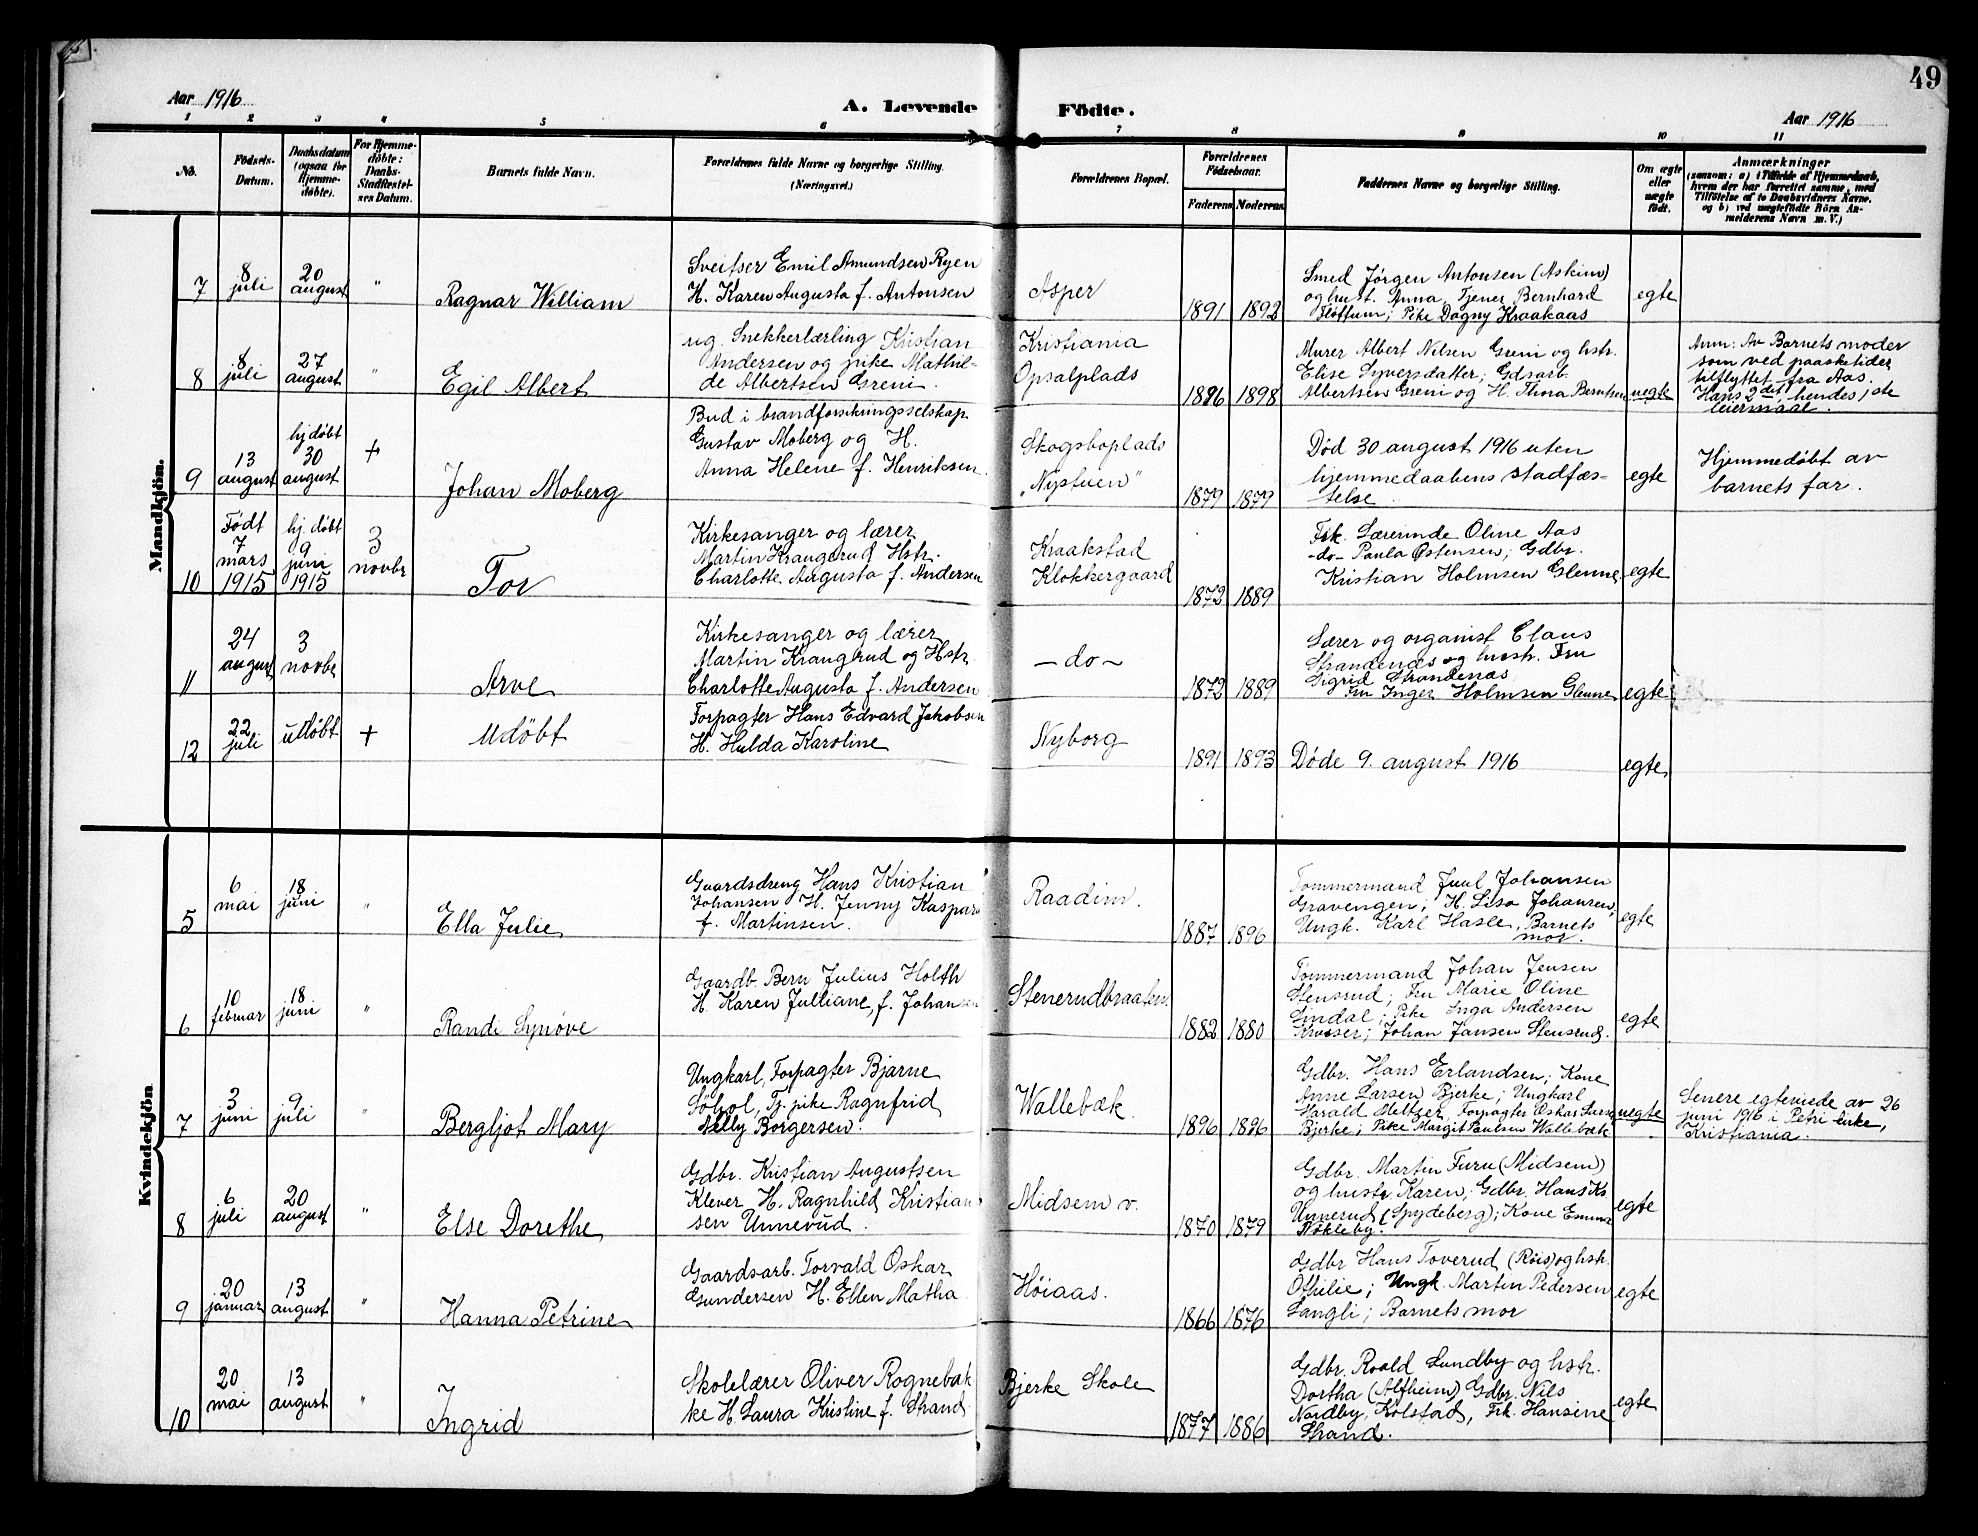 49
Aar 1916
A. Levende Födte.
Aar 1916
1 2 3 4 5 6 7 8 9 10 11
No.
Födsels-
Datum.
Daabsdatum
(ogsaa for
Hjemme-
döbte).
For Hjemme-
döbte:
Daabs-
Stadfæstel-
ses Datum.
Barnets fulde Navn.
Forældrenes fulde Navne og borgerlige Stilling.
(Næringsvei.)
Forældrenes Bopæl.
Forældrenes
Födselsaar.
Faderens Moderens
Faddernes Navne og borgerlige Stilling.
Om ægte
eller
uægte
födt.
Anmærkninger
(saasom: a) i Tilfælde af Hjemmedaab,
hvem der har forrettet samme, med
Tilföielse af to Daabsvidners Navne.
og b) ved uægtefödte Börn An-
melderens Navn m. V.)
Mandkjön.
7
8
juli
20
august
"
Ragnar William
Sveitser Emil Amundsen Ryen
H. Karen Augusta f. Antonsen
Asper
1891 1892
Smed Jørgen Antonsen (Askim)
og hust. Anna, Tjener Bernhard
Pike Dagny Kraakaas
egte
8
8
juli
27
august
"
Egil Albert
ug. Snekkerlærling Kristian
Andersen og pike Mathil-
de Albertsen Greni.
Kristiania
Opsalplads
1896 1898
Murer Albert Nilsen Greni og hstr.
Elise Syversdatter; Gdsarb.
Albertsen Greni og H. Thina Berntsen
uegte
Anm: Av Barnets moder
som ved paasketider
tilflyttet fra Aas.
Hans 2det, hendes 1ste
leiermaal.
9
13
august
hj døbt
30
august
+
Johan Moberg
Bud i brandforsikringsselskap
Gustav Moberg og H.
Anna Helene f. Henriksen.
Skogsboplads
"Nystuen"
1879 1879
Død 30 august 1916 uten
hjemmedaabens stadfæs-
telse.
egte
Hjemmedøbt av
barnets far.
10
Født
7
mars
1915
hj døbt
9
juni
1915
3
novbr
Tor
Kirkesanger og lærer
Martin Krangsrud Hstr.
Charlotte Augusta f. Andersen
Kraakstad
Klokkergaard
1872 1889
Frk. Lærerinde Oline Aas
-do- Paula Østensen; Gdbr.
Kristian Holmsen Glenne
egte
11
24
august
3
novbr
Arve
Kirkesanger og lærer
Martin Krangsrud og Hstr
Charlotte Augusta f. Andersen
-do-
1872 1889
Lærer og organist Claus
Strandenæs og hustr. Fru
Sigrid Strandenæs
Fru Inger Holmsen Glenne
egte
12
22
juli
udøbt
+
Udøbt
Forpagter Hans Edvard Jakobsen
H. Hulda Karoline
Nyborg
1891 1893
Døde 9. august 1916
egte
Kvindekjön
5
6
mai
18
juni
"
Ella Julie
Gaardsdreng Hans Kristian
Johansen H. Jenny Kaspara
f. Martinsen.
Raadim.
1887 1896
Tømmermand Juul Johansen
Gravengen; H. Lisa Johansen,
Ungk. Karl Hasle, Barnets
mor.
egte
6
10
februar
18
juni
"
Randi Synøve
Gaardb. Bern Julius Holth
H. Karen Julliane f. Johansen
Stenerudbraaten.
1882 1880
Tømmermand Johan Jensen
Stensrud; Fru Marie Oline
Lindal; Pike Inga Andersen
Johan Jansen Stensrud.
egte
7
3
juni
9
juli
"
Bergljot Mary
Ungkarl, Forpagter Bjarne
Søhol, Tj. pike Ragnfrid
Nelly Borgersen.
Wallebæk.
1896 1896
Gdbr. Hans Erlandsen; Kone
Anne Larsen Bjerke; Ungkarl
Harald Meltzer, Forpagter Oskar Larsen
Bjerke; Pike Margit Paulsen Wallebæk
uegte
Senere egteviede av 26
juni 1916 i Petri kirke,
Kristiania.
8
6
juli
20
august
"
Else Dorethe
Gdbr. Kristian Augustsen
Klever H. Ragnhild Kristian-
sen Unnerud.
Midsem v.
1870 1879
Gdbr. Martin Furu (Midsem)
og hustr Karen; Gdbr. Hans Kr.
Unnerud (Spydeberg); Kone Emma
Nøkleby.
egte
9
20
januar
13
august
"
Hanna Petrine
Gaardsarb. Torvald Oskar
Gundersen H. Ellen Matha
Høiaas.
1866 1876
Gdbr Hans Toverud (Røis) og hstr.
Othilie; Ungk. Martin Pedersen
Langli; Barnets mor
egte
10
20
mai
13
august
"
Ingrid
Skolelærer Oliver Rognebæk
ke H. Laura Kristine f. Strand
Bjerke Skole
1877 1886
Gdbr. Roald Lundby og hstr.
Dortha (Alfheim) Gdbr. Nils
Nordby, Kolstad, Frk. Hansine
Strand.
egte